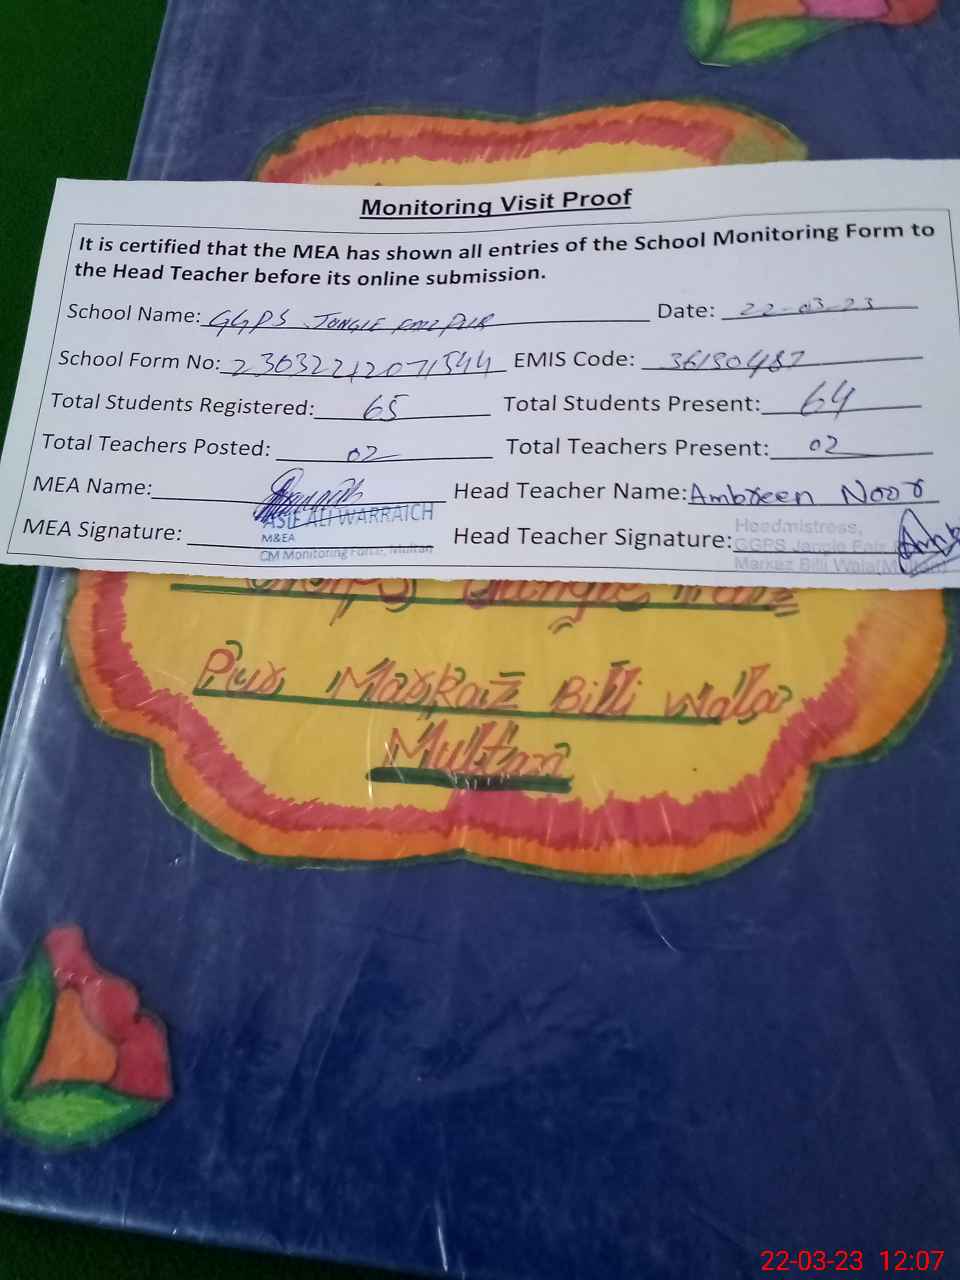 Monitoring Visit Proof
It is certified that the MEA has shown all entries of the School Monitoring Form to
the Head Teacher before its online submission.
School Name: GGPS Jongle Faiz Pur Date: 22-03-23
School Form No: 23032212071544 EMIS Code: 36130487
Total Students Registered: 65 Total Students Present: 64
Total Teachers Posted: 02 Total Teachers Present: 02
MEA Name: Head Teacher Name: Ambreen Noor
ASIF ALI WARRAICH
M&EA
CM Monitoring Force, Multan
MEA Signature: Head Teacher Signature:
Headmistress,
GGPS Jangle Faiz
Markaz Billi Wala (Multan)
Pur Markaz Billi Wala
Multan
22-03-23 12:07